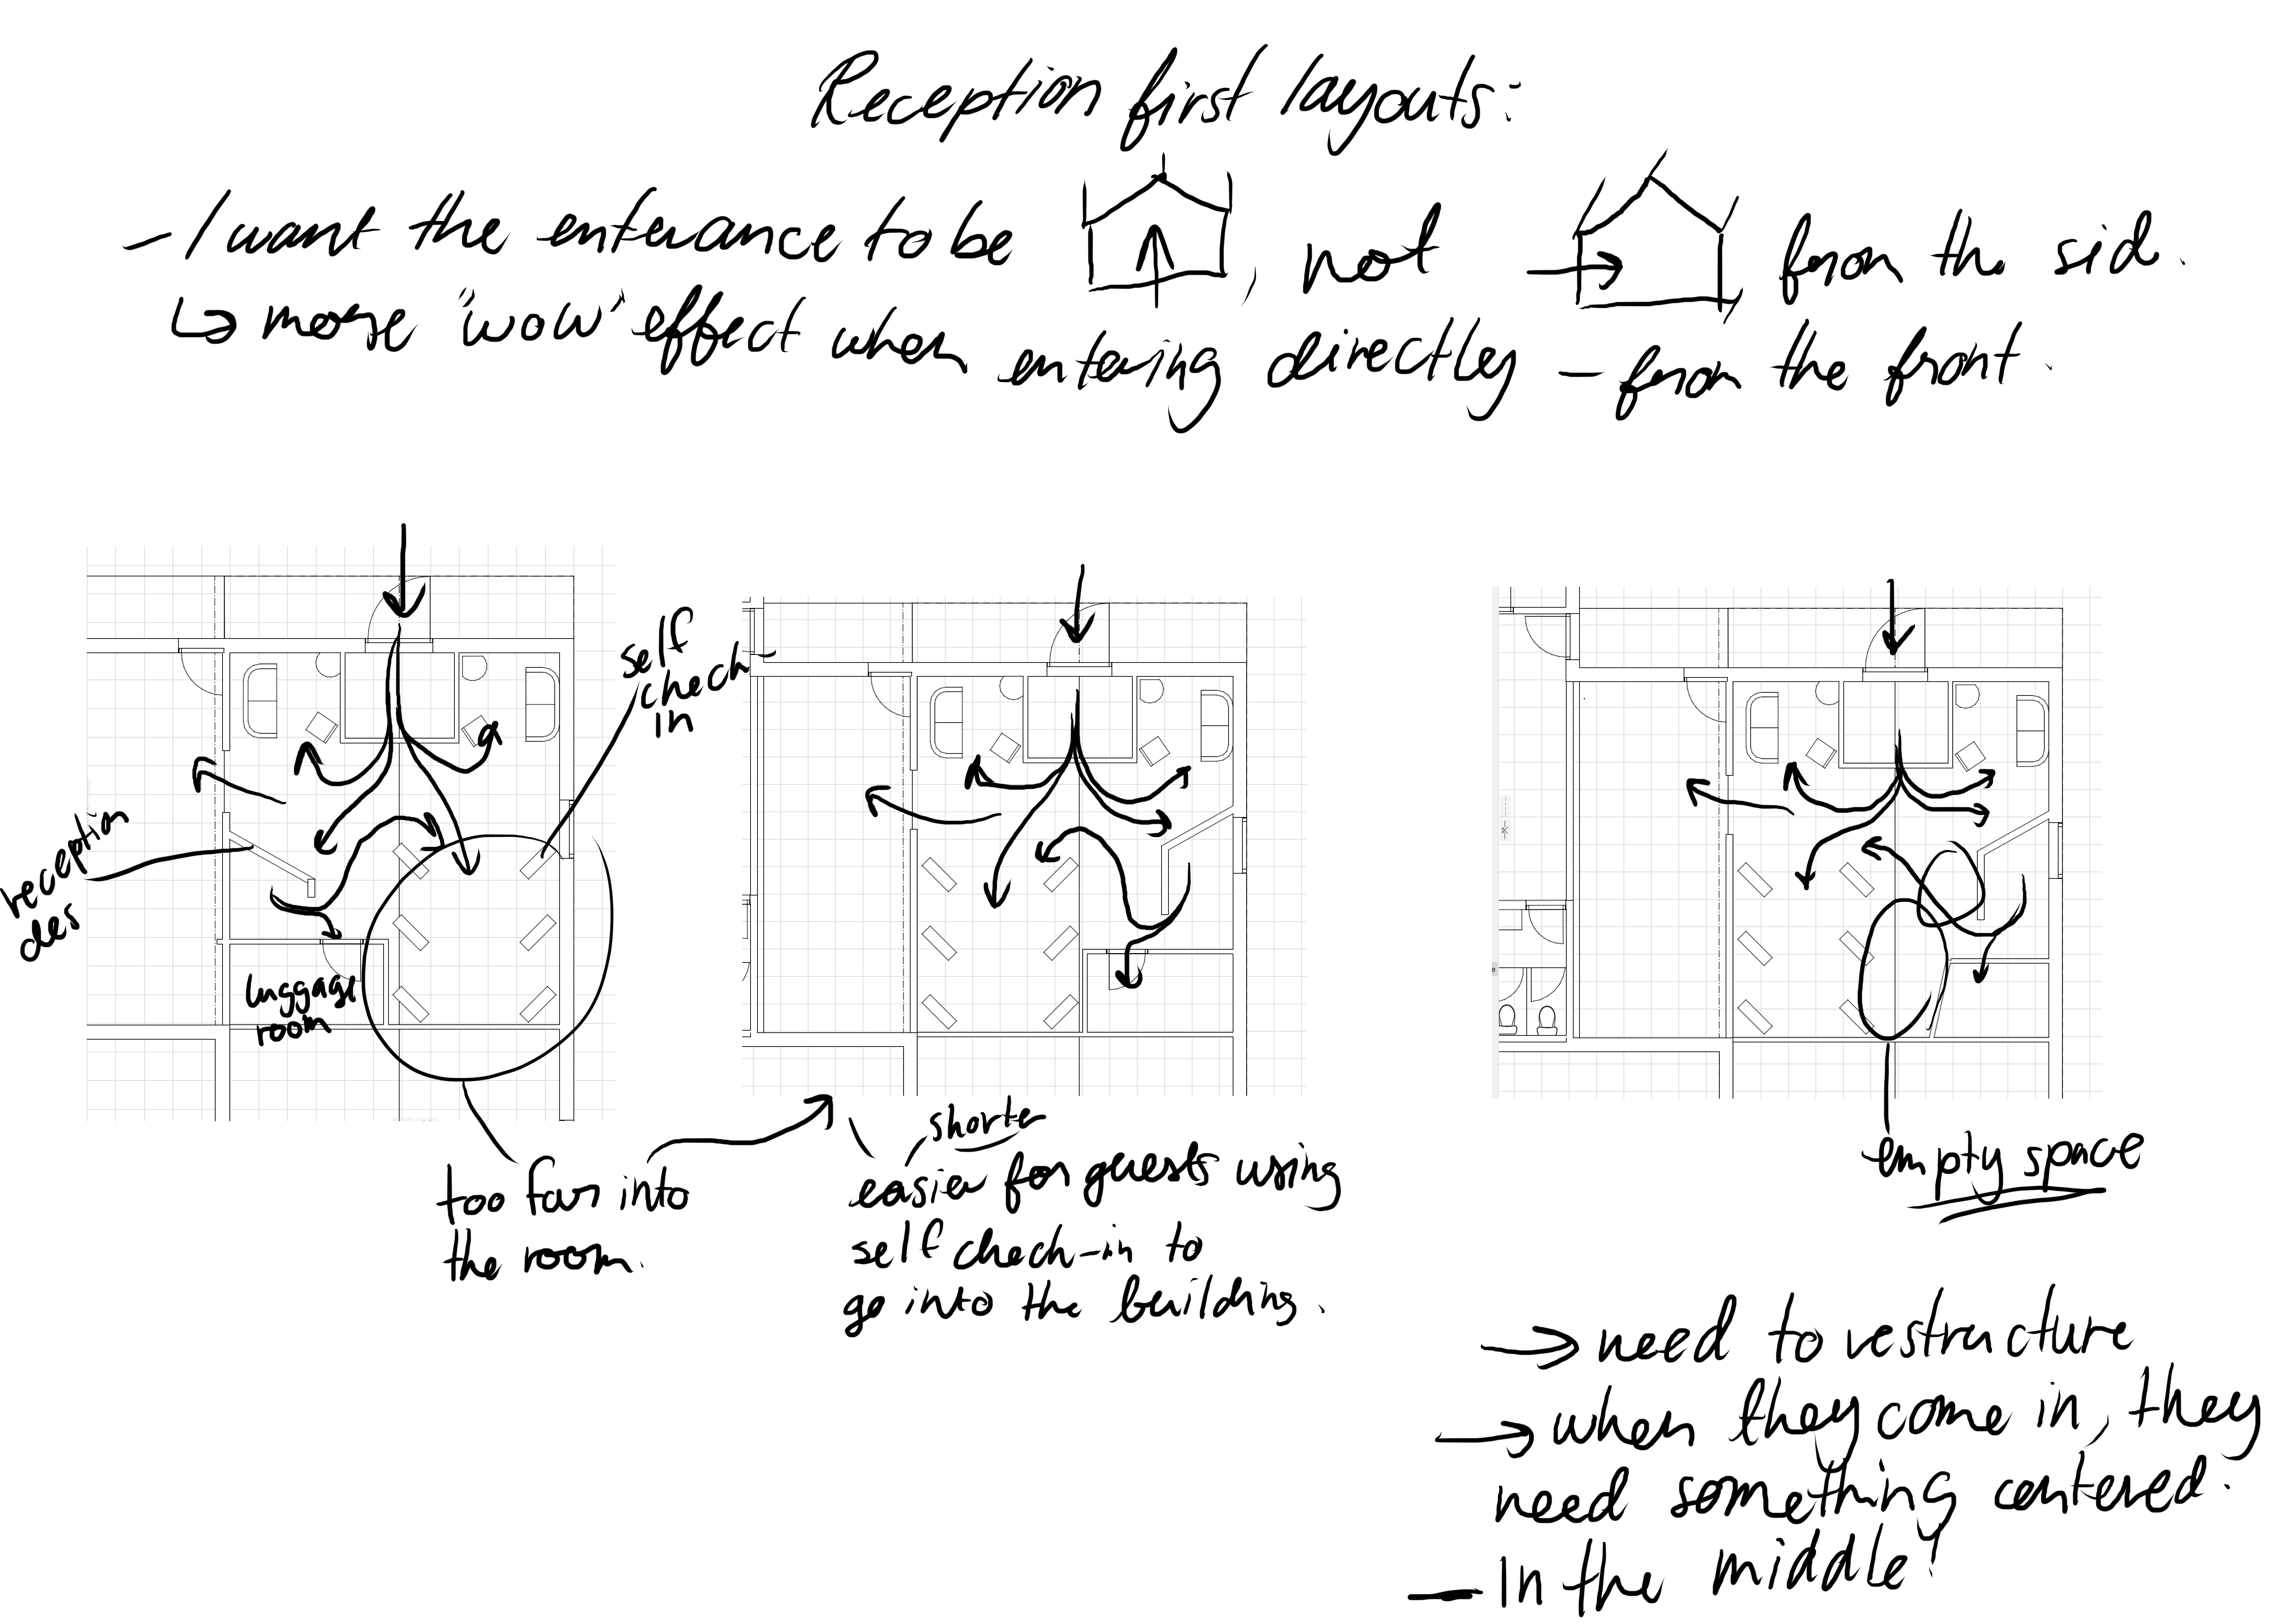 Reception first layouts:
- I want the enterance to be , not from the side.
↳ more "wow" effect when entering directly - from the front.
self
check-
in
reception
des
luggage
room
too far into
the room.
shorter
easier for guests using
self check-in to
go into the building.
empty space
→ need to restructure
→ when they come in, they
need something centered.
- In the middle!